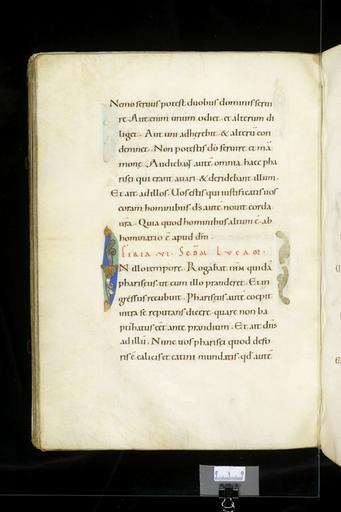 Nemo seruus potest duobus dominis serui
re. Aut enim unum odiet. et alterum di
liget. Aut uni adherebit. & alterū con
demnet. Non potestis dō seruire et ma
mone. Audiebaṅt autē omnia haec pha
risei qui erant auari. & deridebant illum.
Et ait ad illos. Uos estis qui iustificatis uos
coram hominibus. ds̄ autē nouit corda
ur̄a. Quia quod hominibus altum ē. ab
hominatio ē apud dm̄.
FERIA VI. SECDM LUCAM.
IN illo tempore. Rogabat ihm̄ quidā
phariseus ut cum illo pranderet. Et in
gressus recubuit. Phariseus autē coepit
intra se reputans dicere. quare non ba
ptizatus eēt ante prandium. Et ait dns̄
ad illū. Nunc uos pharisei quod defo
ris ē calicis et catini mundatis. qd̄ autē